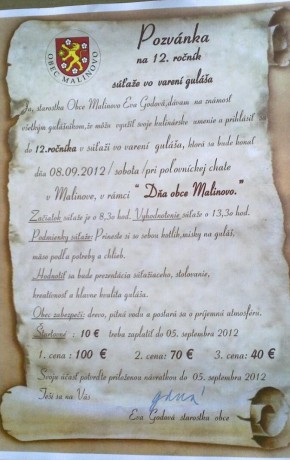 OBEC MALINOVO
Pozvánka
na 12. ročník
súťaže vo varení guláša
Ja, starostka Obce Malinovo Eva Godová, dávam na známosť
všetkým gulášnikom, že môžu využiť svoje kulinárske umenie a prihlásiť sa
do 12. ročníka v súťaži vo varení guláša, ktorá sa bude konať
dňa 08.09.2012 / sobota / pri poľovníckej chate
v Malinove, v rámci " Dňa obce Malinovo."
Začiatok súťaže je o 8,30 hod. Vyhodnotenie súťaže o 13,30 hod.
Podmienky súťaže: Priniesť si so sebou kotlík, misky na guláš,
mäso podľa potreby a chlieb.
Hodnotiť sa bude prezentácia súťažiaceho, stolovanie,
kreativnosť a hlavne kvalita guláša.
Obec zabezpečí: drevo, pitnú vodu a postará sa o príjemnú atmosféru.
Štartovné : 10 € treba zaplatiť do 05. septembra 2012
1. cena : 100 € 2. cena: 70 € 3. cena: 40 €
Svoju účasť potvrďte priloženou návratkou do 05. septembra 2012
Teší sa na Vás
Eva Godová starostka obce